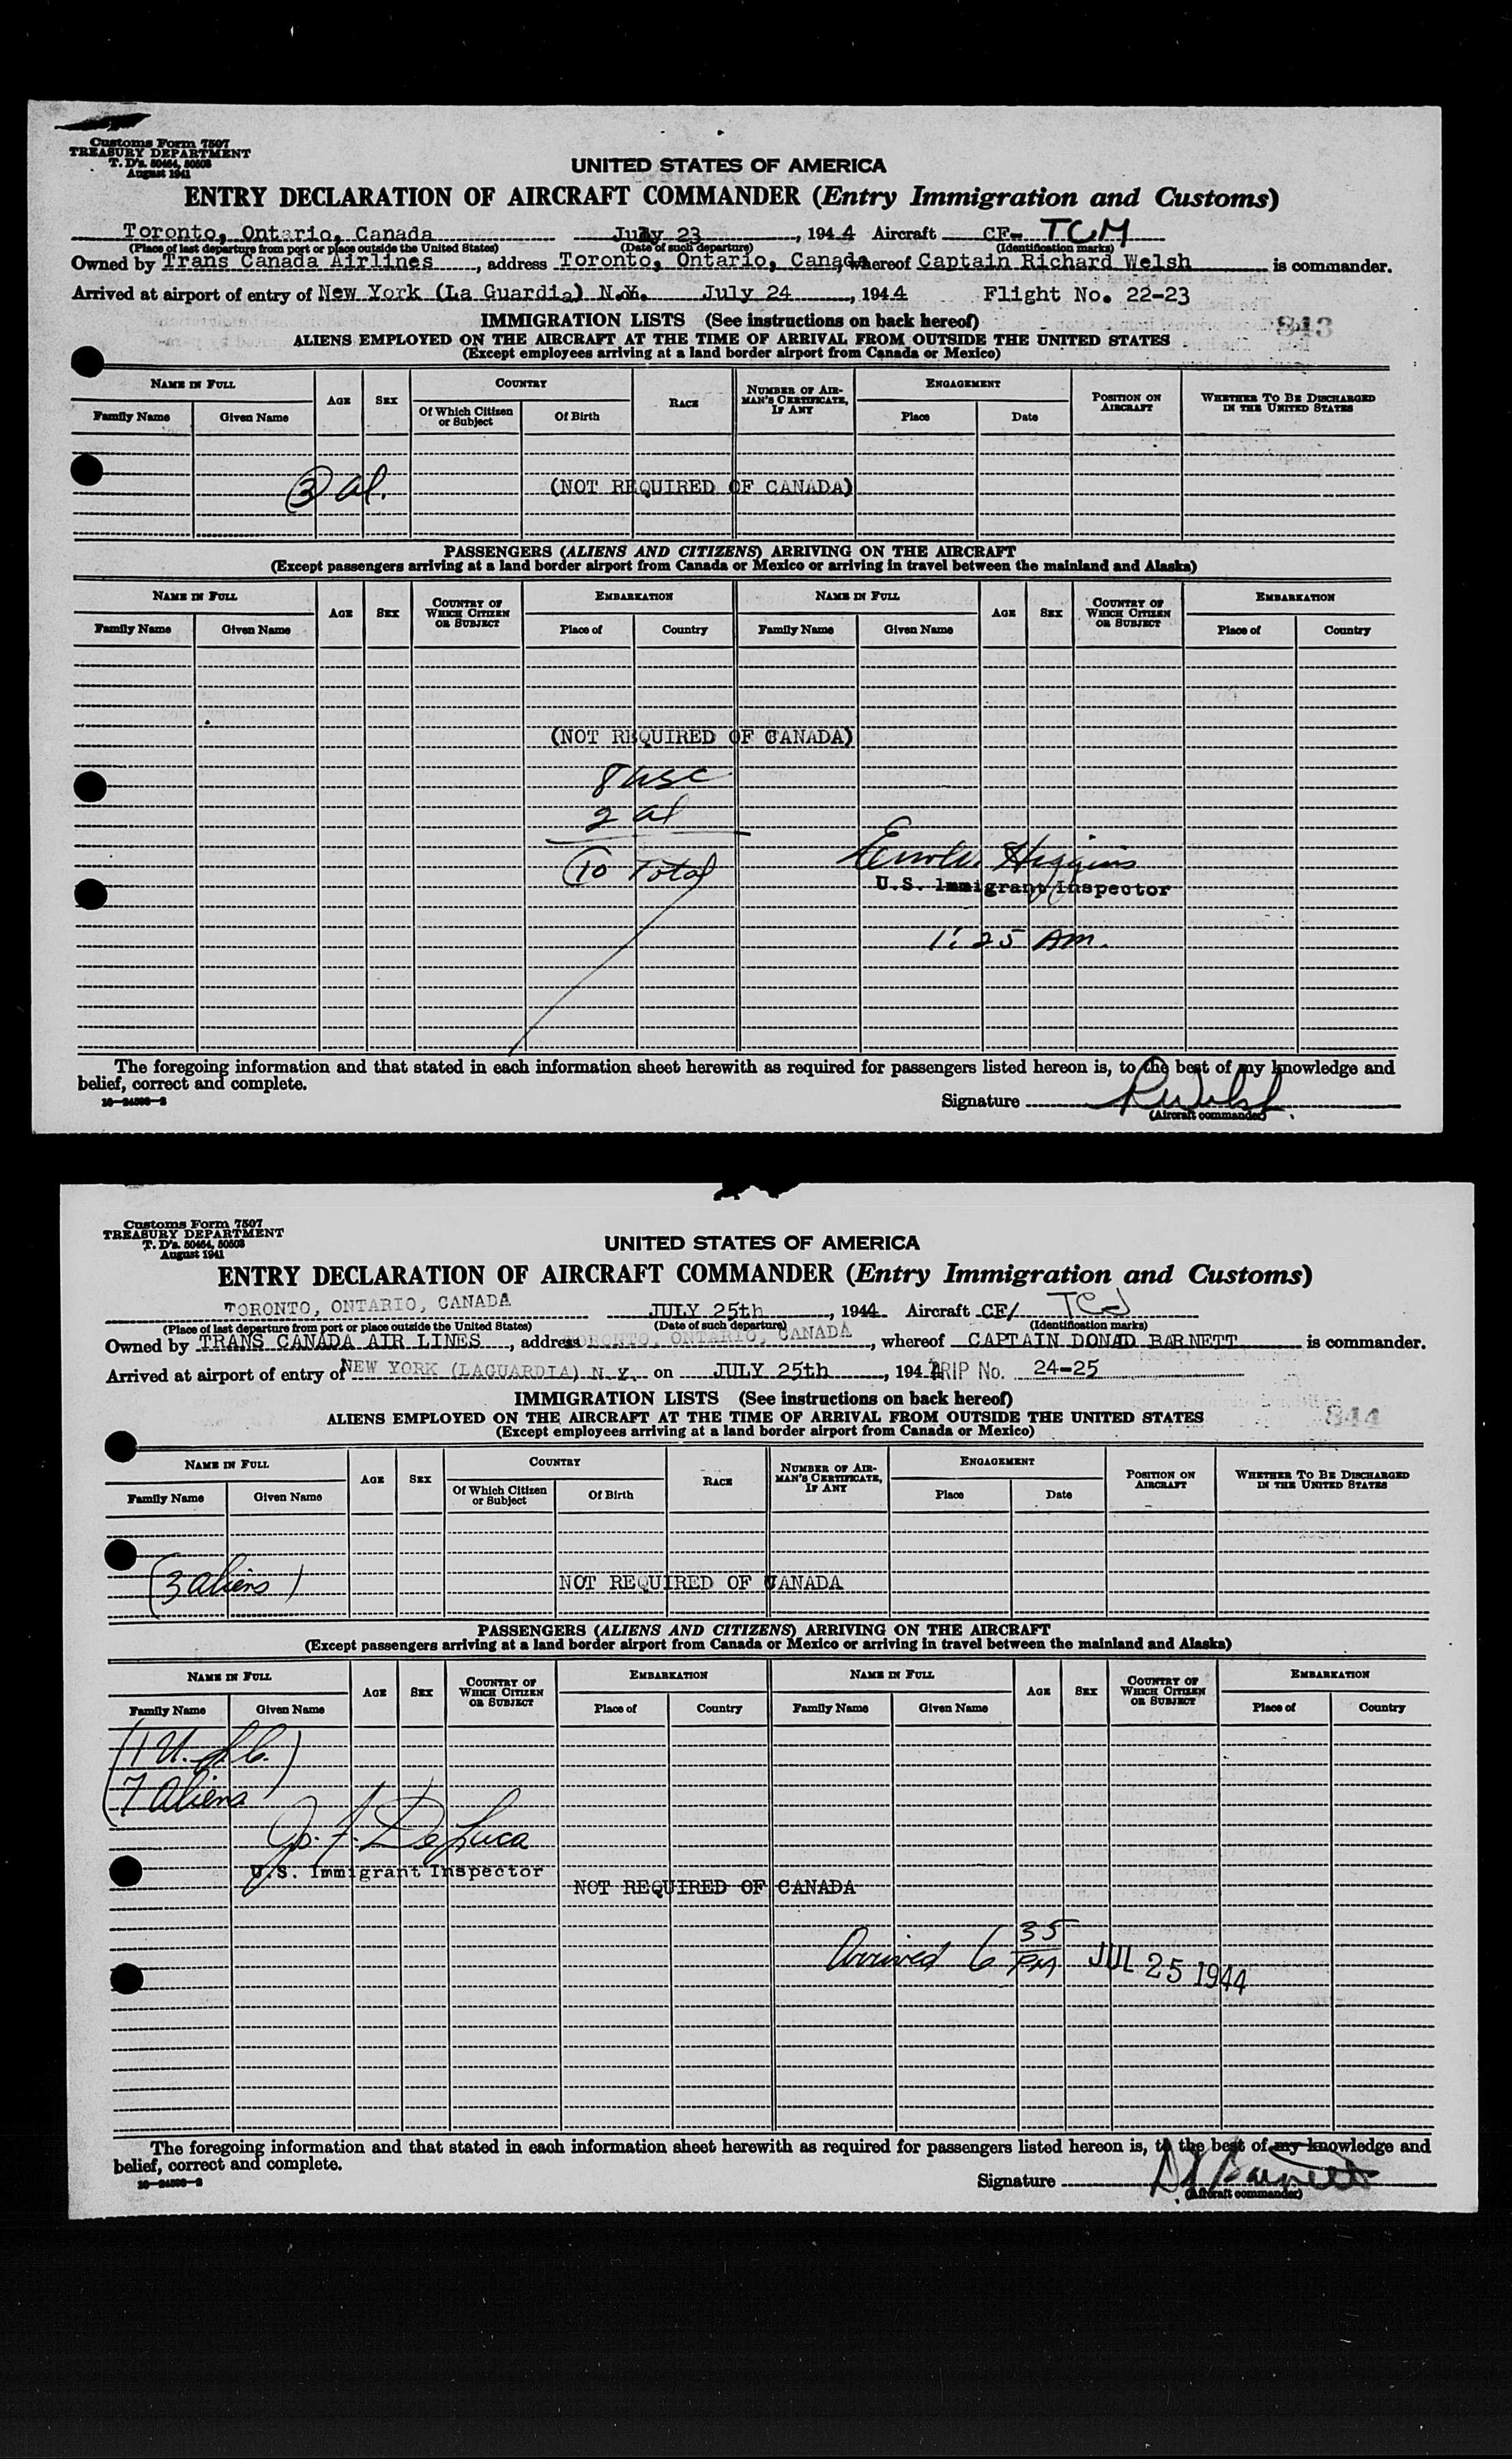 Customs Form 7507
TREASURY DEPARTMENT
T. D's. 50464, 50503
August 1941
UNITED STATES OF AMERICA
ENTRY DECLARATION OF AIRCRAFT COMMANDER (Entry Immigration and Customs)
Toronto, Ontario, Canada July 23, 1944 Aircraft CF- TCM
(Place of last departure from port or place outside the United States) (Date of such departure) (Identification marks)
Owned by Trans Canada Airlines, address Toronto, Ontario, Canada, whereof Captain Richard Welsh is commander.
Arrived at airport of entry of New York (La Guardia) N.Y. July 24, 1944 Flight No. 22-23
IMMIGRATION LISTS (See instructions on back hereof)
843
ALIENS EMPLOYED ON THE AIRCRAFT AT THE TIME OF ARRIVAL FROM OUTSIDE THE UNITED STATES
(Except employees arriving at a land border airport from Canada or Mexico)
NAME IN FULL AGE SEX COUNTRY RACE NUMBER OF AIRMAN'S CERTIFICATE, IF ANY ENGAGEMENT POSITION ON AIRCRAFT WHETHER TO BE DISCHARGED IN THE UNITED STATES
Family Name Given Name Of Which Citizen or Subject Of Birth Place Date
3 al. (NOT REQUIRED OF CANADA)
PASSENGERS (ALIENS AND CITIZENS) ARRIVING ON THE AIRCRAFT
(Except passengers arriving at a land border airport from Canada or Mexico or arriving in travel between the mainland and Alaska)
NAME IN FULL AGE SEX COUNTRY OF WHICH CITIZEN OR SUBJECT EMBARKATION NAME IN FULL AGE SEX COUNTRY OF WHICH CITIZEN OR SUBJECT EMBARKATION
Family Name Given Name Place of Country Family Name Given Name Place of Country
(NOT REQUIRED OF CANADA)
8 usc
2 al
10 Total Higgins
U.S. Immigrant Inspector
1:25 AM.
The foregoing information and that stated in each information sheet herewith as required for passengers listed hereon is, to the best of my knowledge and
belief, correct and complete.
16-24500-2 Signature R Welsh
(Aircraft commander)
Customs Form 7507
TREASURY DEPARTMENT
T. D's. 50464, 50503
August 1941
UNITED STATES OF AMERICA
ENTRY DECLARATION OF AIRCRAFT COMMANDER (Entry Immigration and Customs)
TORONTO, ONTARIO, CANADA JULY 25th, 1944 Aircraft CF/ TCJ
(Place of last departure from port or place outside the United States) (Date of such departure) (Identification marks)
Owned by TRANS CANADA AIR LINES, address TORONTO, ONTARIO, CANADA, whereof CAPTAIN DONAD BARNETT is commander.
Arrived at airport of entry of NEW YORK (LAGUARDIA) N.Y. on JULY 25th, 1944 TRIP No. 24-25
IMMIGRATION LISTS (See instructions on back hereof)
844
ALIENS EMPLOYED ON THE AIRCRAFT AT THE TIME OF ARRIVAL FROM OUTSIDE THE UNITED STATES
(Except employees arriving at a land border airport from Canada or Mexico)
NAME IN FULL AGE SEX COUNTRY RACE NUMBER OF AIRMAN'S CERTIFICATE, IF ANY ENGAGEMENT POSITION ON AIRCRAFT WHETHER TO BE DISCHARGED IN THE UNITED STATES
Family Name Given Name Of Which Citizen or Subject Of Birth Place Date
(3 aliens) NOT REQUIRED OF CANADA
PASSENGERS (ALIENS AND CITIZENS) ARRIVING ON THE AIRCRAFT
(Except passengers arriving at a land border airport from Canada or Mexico or arriving in travel between the mainland and Alaska)
NAME IN FULL AGE SEX COUNTRY OF WHICH CITIZEN OR SUBJECT EMBARKATION NAME IN FULL AGE SEX COUNTRY OF WHICH CITIZEN OR SUBJECT EMBARKATION
Family Name Given Name Place of Country Family Name Given Name Place of Country
(1 U.S.C.)
(7 aliens
Jo. F. DeLuca
U.S. Immigrant Inspector
NOT REQUIRED OF CANADA
Arrived 6 35 PM JUL 25 1944
The foregoing information and that stated in each information sheet herewith as required for passengers listed hereon is, to the best of my knowledge and
belief, correct and complete.
16-24500-2 Signature D Barnett
(Aircraft commander)